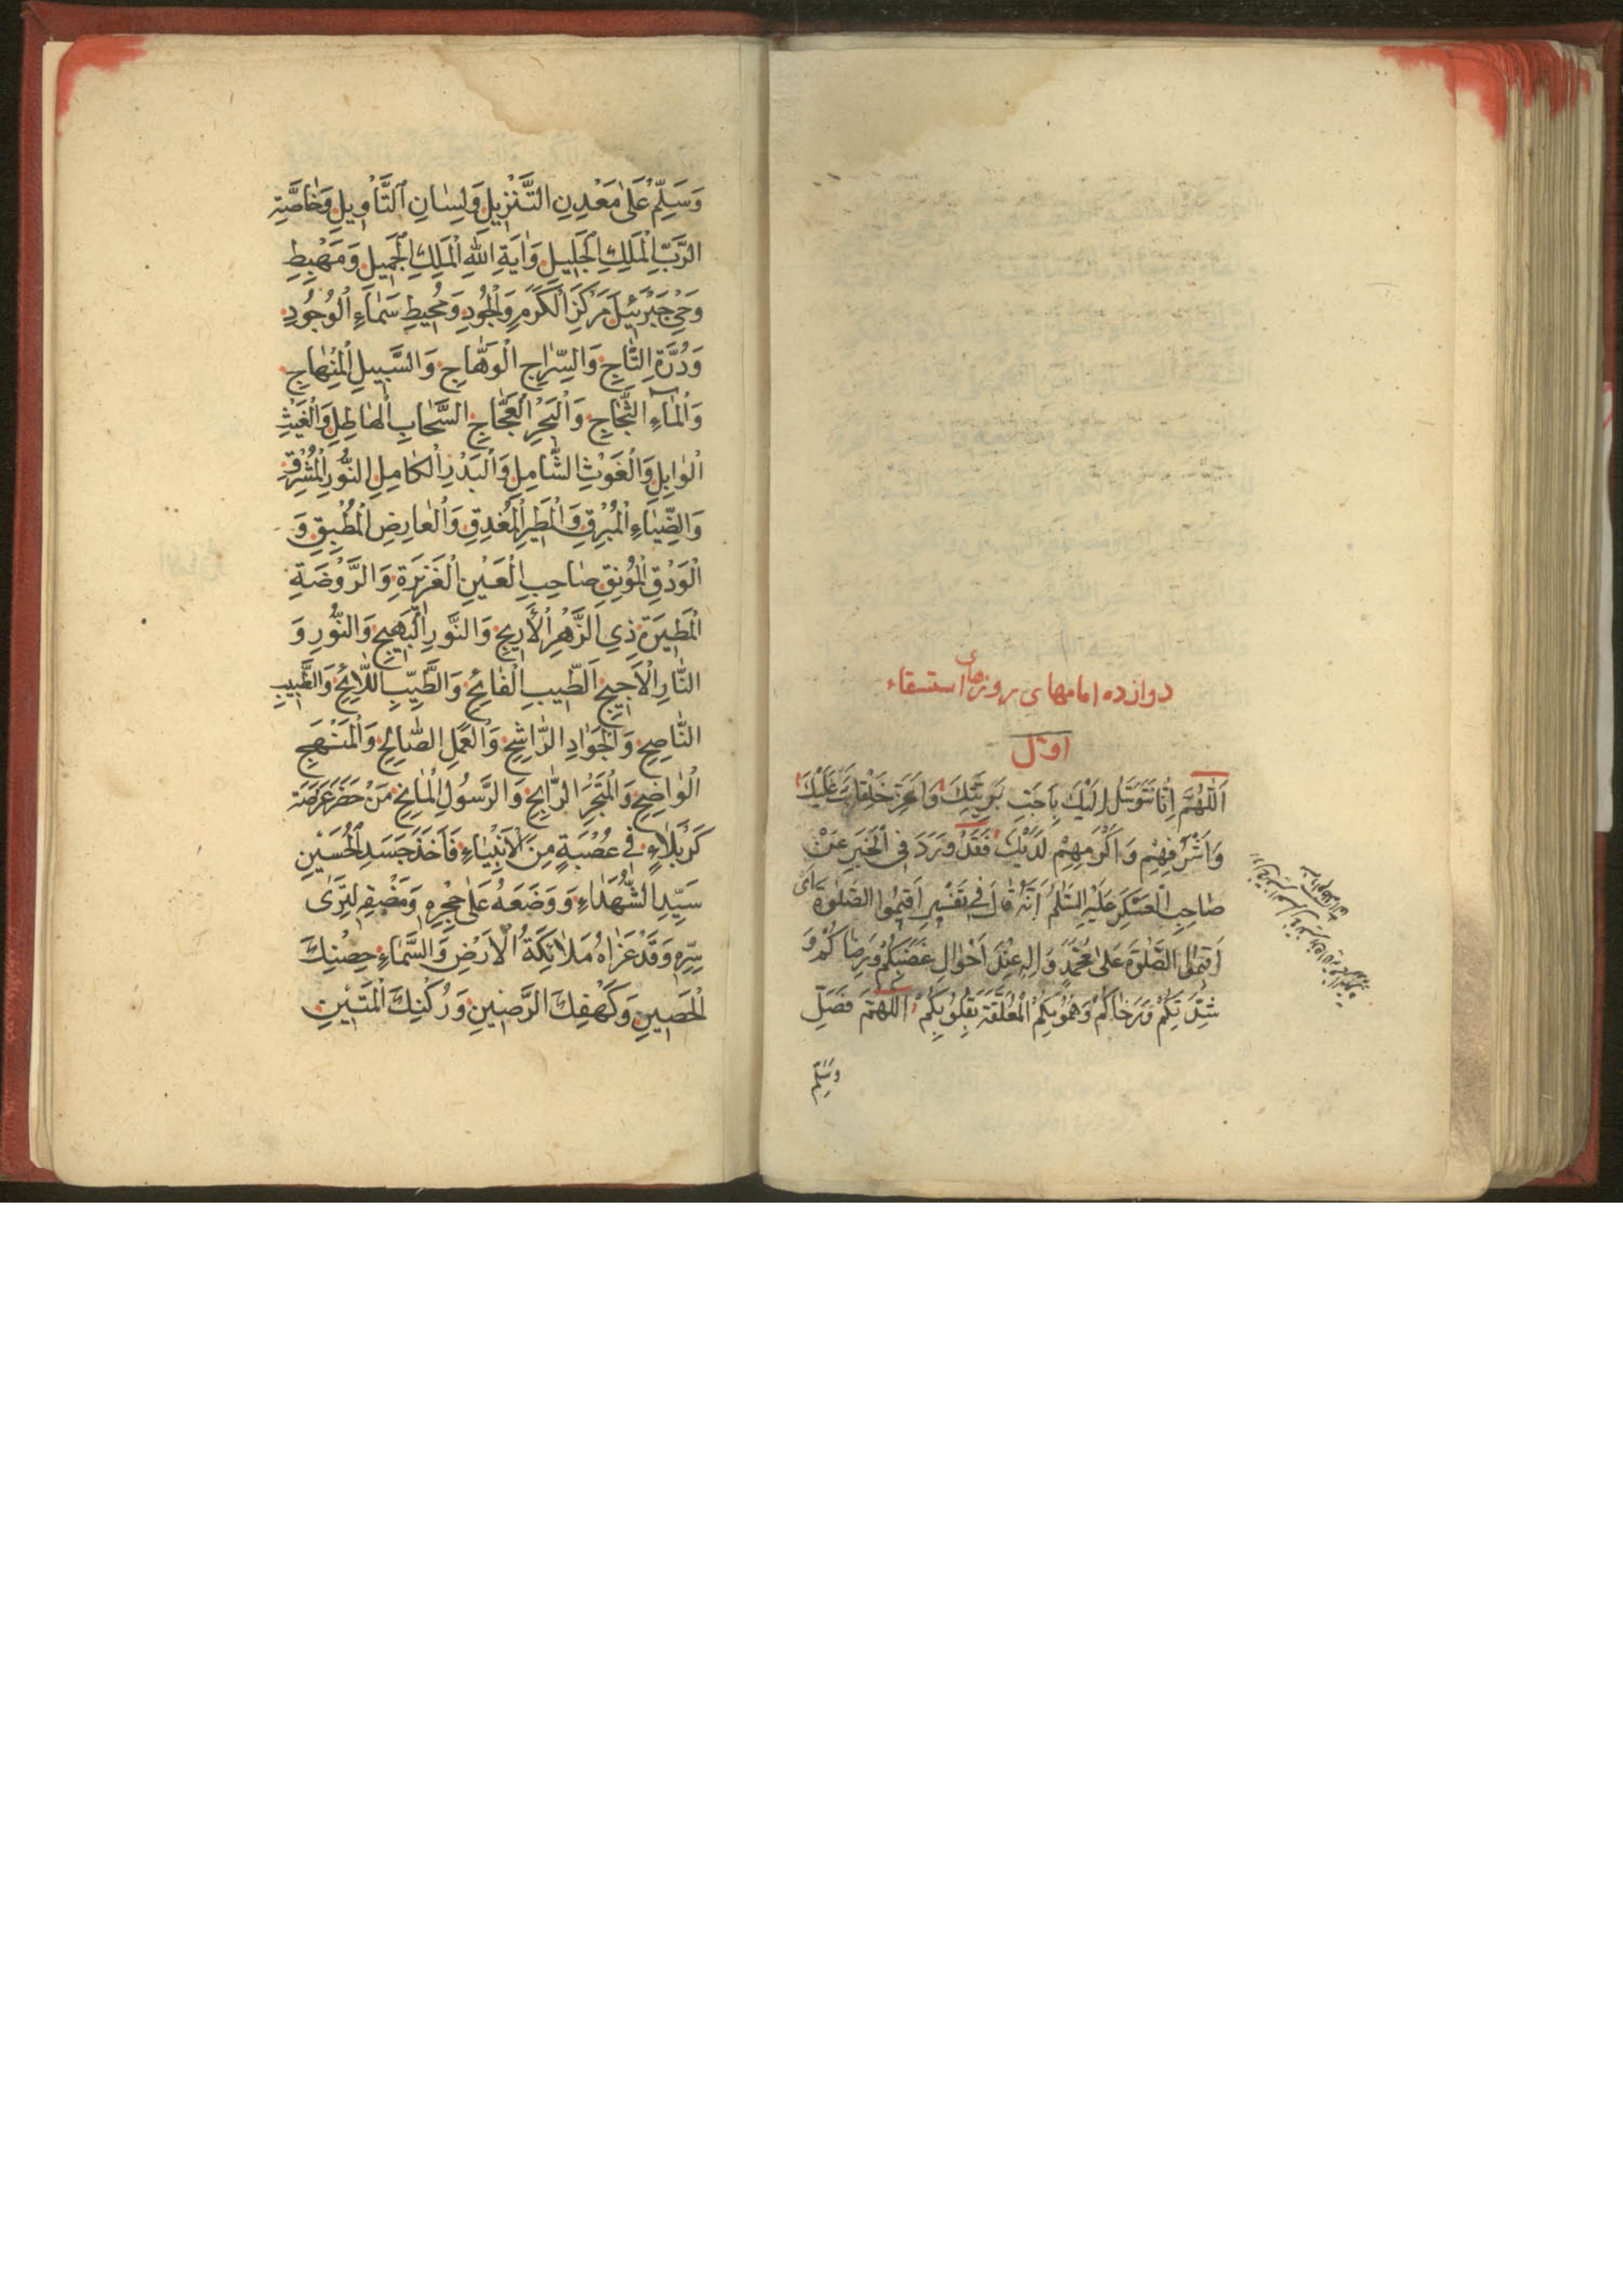 دوازده امامهای روزهای استسقاء
اوّل
اَللّٰهُمَّ اِنّٰا نَتَوَسَّلُ اِلَيْكَ بِاَحَبِّ بَرِيَّتِكَ وَاَعَزِّ خَلْقِكَ عَلَيْكَ
وَاَشْرَفِهِمْ وَاَكْرَمِهِمْ لَدَيْكَ فَقَدْ وَرَدَ فِي الْخَبَرِ عَنْ
صٰاحِبِ الْعَسْكَرِ عَلَيْهِ السَّلٰمُ اَنَّهُ قٰالَ فِي تَفْسِيرِ اَقِيمُوا الصَّلٰوةَ اَىْ
اَقِيمُوا الصَّلٰوةَ عَلىٰ مُحَمَّدٍ وَاٰلِهِ عِنْدَ اَحْوٰالِ غَضَبِكُمْ وَرِضٰاكُمْ وَ
شِدَّتِكُمْ وَرَخٰاكُمْ وَهُمُوبِكُمْ الْمُعَلَّقَةِ بِقُلُوبِكُمْ اَللّٰهُمَّ فَصَلِّ
وَسَلِّمْ
وَسَلِّمْ عَلىٰ مَعْدِنِ التَّنْزِيلِ وَلِسٰانِ التَّأْوِيلِ وَخٰاصَّةِ
الرَّبِّ الْمَلِكِ الْجَلِيلِ وَاٰيَةِ اللّٰهِ الْمَلِكِ الْجَمِيلِ وَمَهْبِطِ
وَحْيِ جَبْرَئِيلَ مَرْكَزِ الْكَرَمِ وَالْجُودِ وَمُحِيطِ سَمٰاءِ الْوُجُودِ
وَدُرَّةِ التّٰاجِ وَالسِّرٰاجِ الْوَهّٰاجِ وَالسَّبِيلِ الْمِنْهٰاجِ
وَالْمٰاءِ الثَّجّٰاجِ وَالْبَحْرِ الْعَجّٰاجِ السَّحٰابِ الْهٰاطِلِ وَالْغَيْثِ
الْوٰابِلِ وَالْغَوْثِ الشّٰامِلِ وَالْبَدْرِ الْكٰامِلِ النُّورِ الْمُشْرِقِ
وَالضِّيٰاءِ الْمُبْرِقِ وَالْمَطَرِ الْمُغْدِقِ وَالْعٰارِضِ الْمُطْبِقِ وَ
الْوَدْقِ الْمُونِقِ صٰاحِبِ الْعَيْنِ الْغَزِيرَةِ وَالرَّوْضَةِ
الْمَطِيرَةِ ذِي الزَّهْرِ الْأَرِيجِ وَالنَّوْرِ الْبَهِيجِ وَالنُّورِ وَ
النّٰارِ الْاَجِيجِ اَلطِّيبِ الْفٰائِحِ وَالطَّيِّبِ اللّٰائِحِ وَالطَّبِيبِ
النّٰاصِحِ وَالْجَوٰادِ الرّٰاشِحِ وَالْعَمَلِ الصّٰالِحِ وَالْمَنْهَجِ
الْوٰاضِحِ وَالْمَتْجَرِ الرّٰابِحِ وَالرَّسُولِ الْمٰانِحِ مَنْ حَضَرَ عَرْصَةَ
كَرْبَلٰاءٍ فِي عُصْبَةٍ مِنَ الْاَنْبِيٰاءِ فَاَخَذَ جَسَدَ الْحُسَيْنِ
سَيِّدِ الشُّهَدٰاءِ وَوَضَعَهُ عَلىٰ حِجْرِهِ وَمَضْىفِهِ لِتَرىٰ
سِرِّهِ وَقَدْ عَزٰاهُ مَلٰائِكَةُ الْاَرْضِ وَالسَّمٰاءِ حِصْنِكَ
الْحَصِينِ وَكَهْفِكَ الرَّصِينِ وَرُكْنِكَ الْمَتِينِ